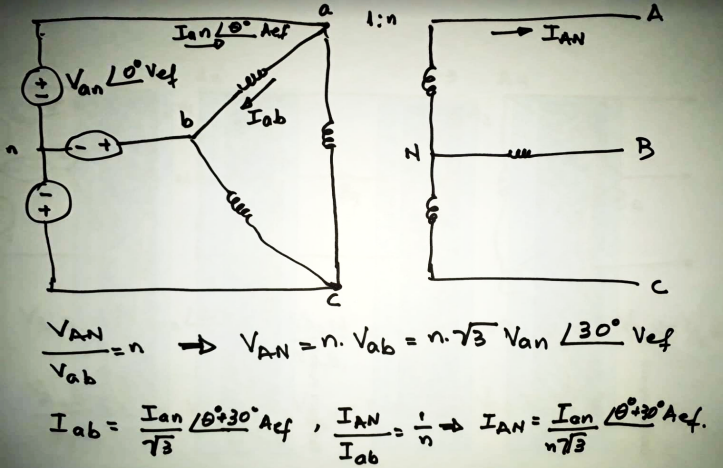 a
1:n
Ian∠θ° Aef
A
IAN
Van∠0° Vef
Iab
b
n
N
B
C
C
VAN/Vab = n ⇒ VAN = n. Vab = n.√3 Van ∠30° Vef
Iab = Ian/√3 ∠θ°+30° Aef , IAN/Iab = 1/n ⇒ IAN = Ian/n√3 ∠θ°+30° Aef.